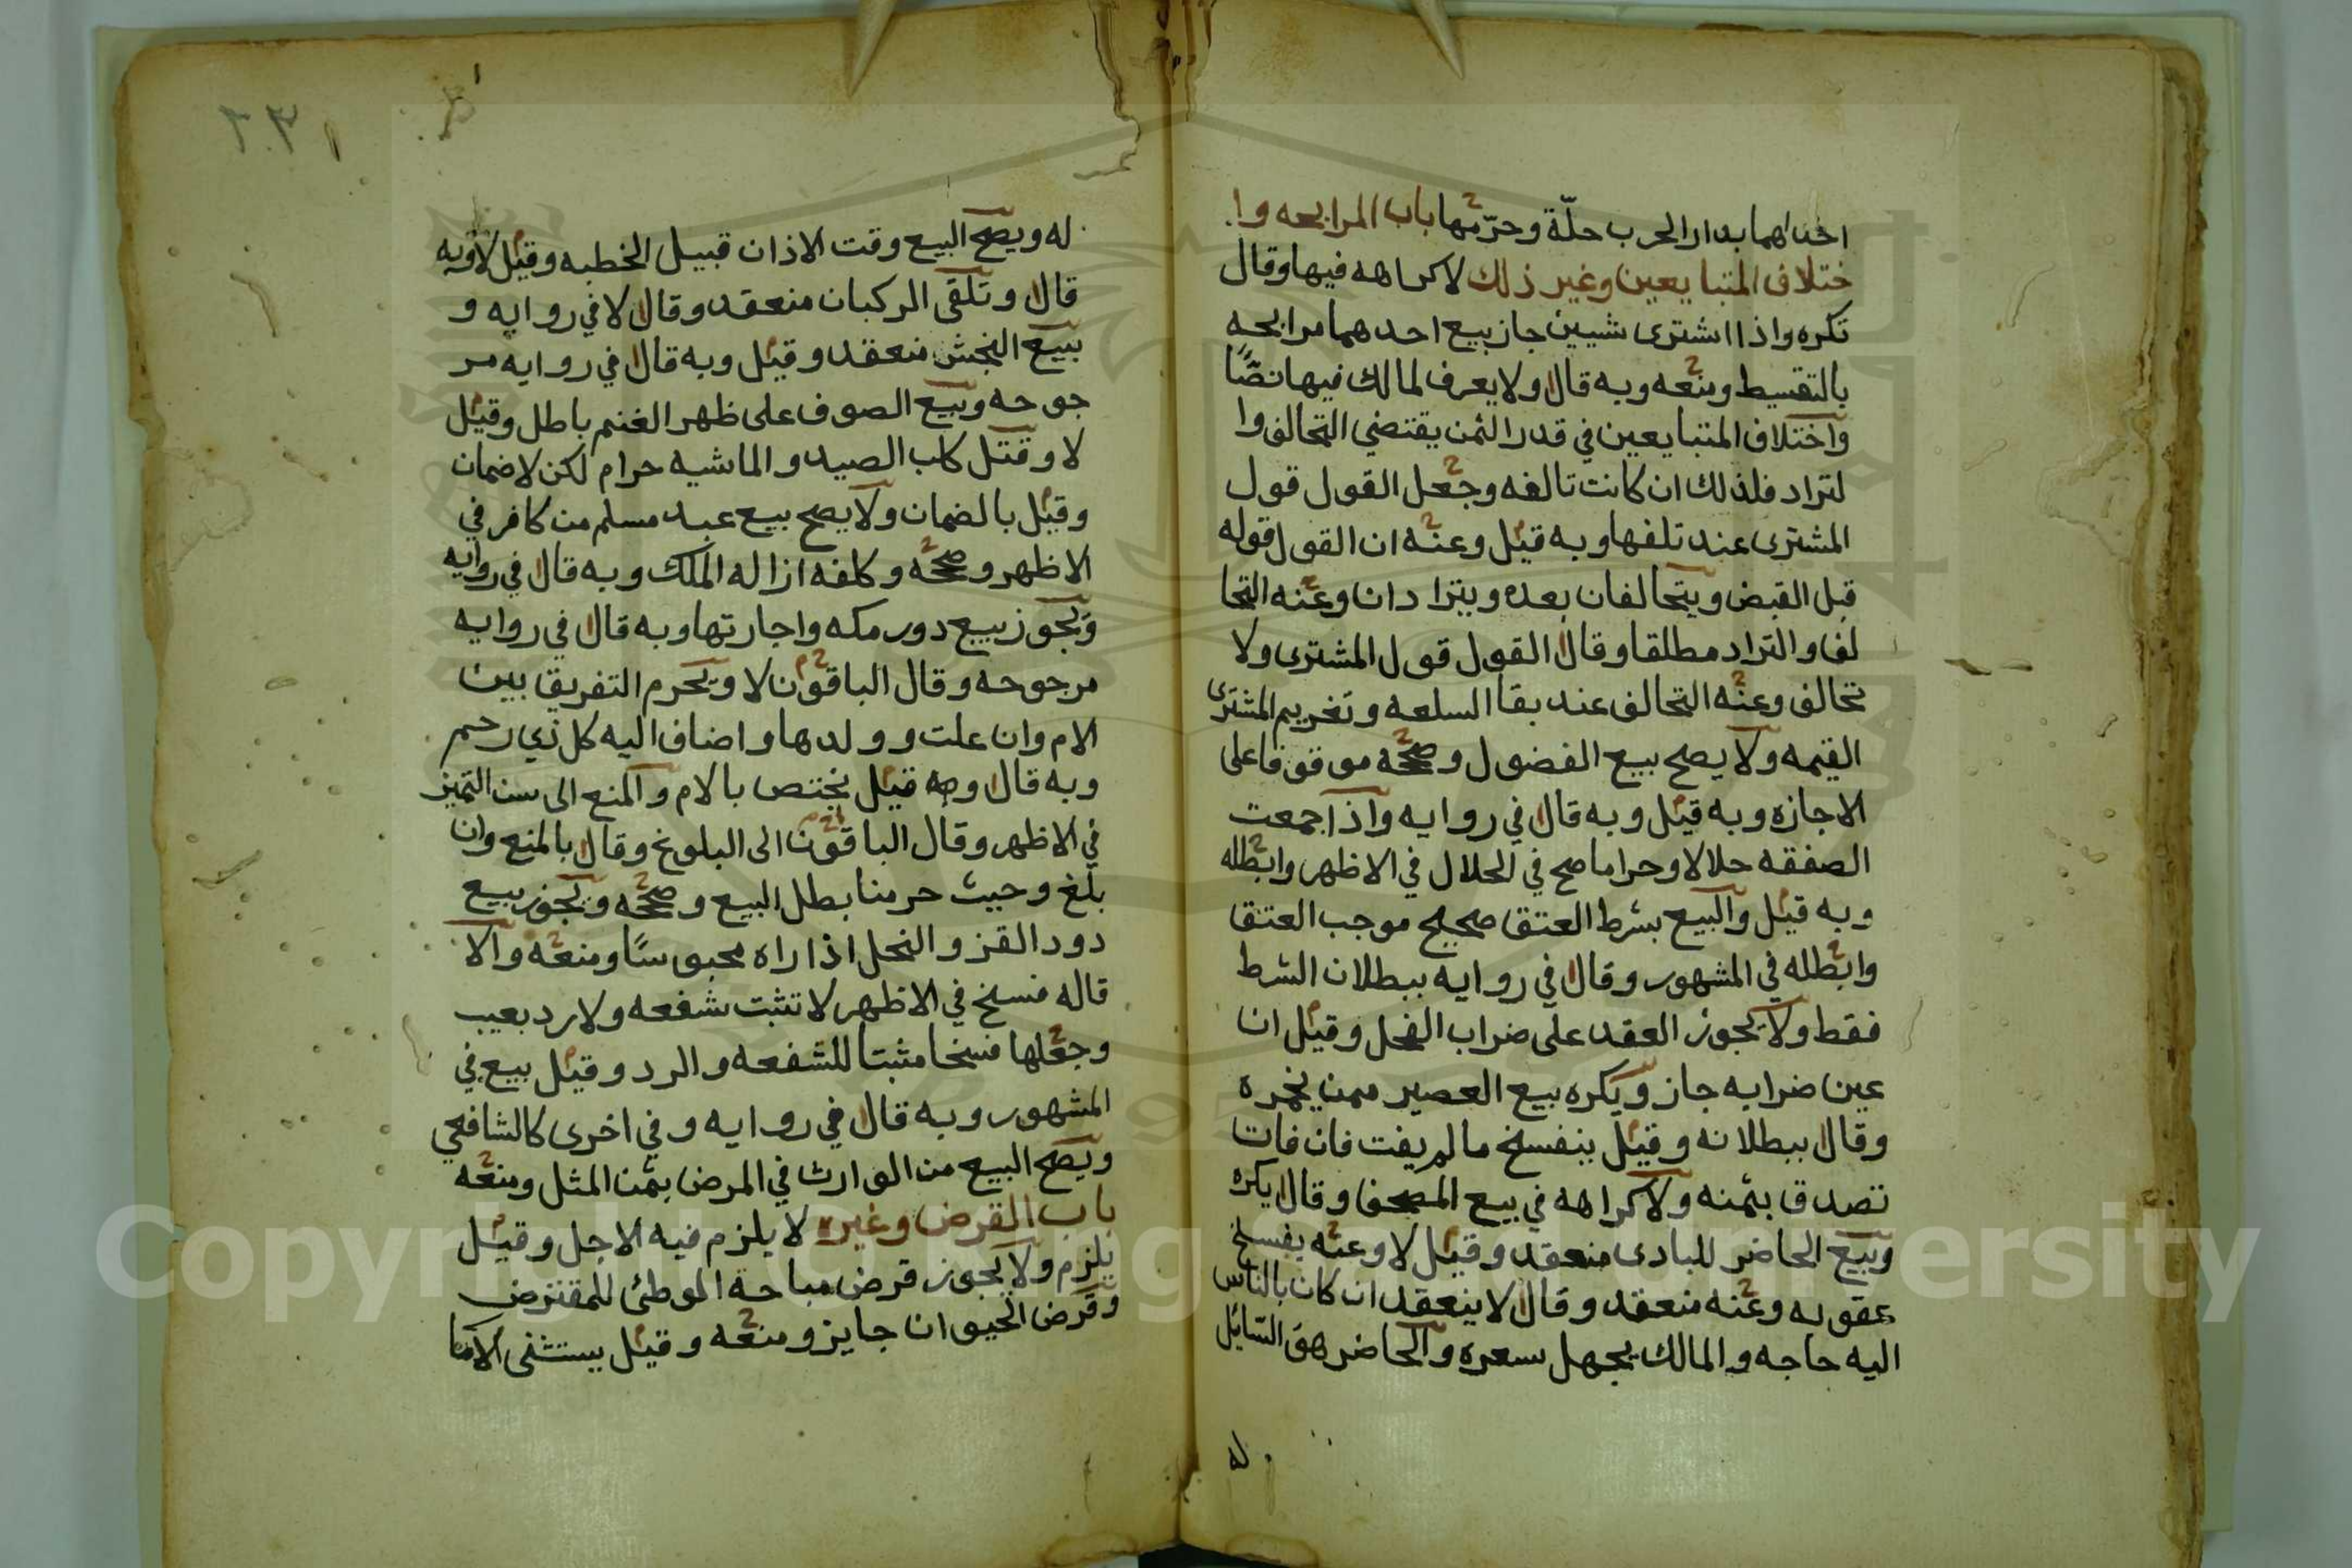 احداهما بدار الحرب حلّة وحرّمها باب المرابحه وا
ختلاف المتبايعين وغير ذلك لاكراهه فيها وقال
تكره واذا اشترى شيين جاز بيع احدهما مرابحه
بالتقسيط ومنعه وبه قال ولا يعرف لمالك فيها نصًّا
واختلاف المتبايعين في قدر الثمن يقتضي التحالف وا
لتراد فلذلك ان كانت تالفه وجعل القول قول
المشترى عند تلفها وبه قيل وعنه ان القول قوله
قبل القبض ويتحالفان بعده ويترادان وعنه التحا
لف والتراد مطلقا وقال القول قول المشترى ولا
تحالف وعنه التحالف عند بقا السلعه وتغريم المشترى
القيمه ولا يصح بيع الفضول وصححه موقوفا على
الاجازه وبه قيل وبه قال في روايه واذا جمعت
الصفقه حلالا وحراما صح في الحلال في الاظهر وابطله
وبه قيل والبيع بشرط العتق صحيح موجب العتق
وابطله في المشهور وقال في روايه ببطلان الشرط
فقط ولا يجوز العقد على ضراب الفحل وقيل ان
عين ضرابه جاز ويكره بيع العصير ممن يخمره
وقال ببطلانه وقيل ينفسخ مالم يفت فان فات
تصدق بثمنه ولاكراهه في بيع المصحف وقال يكره
وبيع الحاضر للبادى منعقد وقيل لا وعنه يفسخ
عقوبه وعنه منعقد وقال لا ينعقد ان كان بالناس
اليه حاجه والمالك يجهل سعره والحاضر هو السايل
له
له ويصح البيع وقت الاذان قبيل الخطبه وقيل لا وبه
قال وتلقى الركبان منعقد وقال لا في روايه و
بيع النجش منعقد وقيل وبه قال في روايه مر
جوحه وبيع الصوف على ظهر الغنم باطل وقيل
لا وقتل كلب الصيد والماشيه حرام لكن لاضمان
وقيل بالضمان ولا يصح بيع عبد مسلم من كافر في
الاظهر وصححه وكلفه ازاله الملك وبه قال في روايه
ويجوز بيع دور مكه واجارتها وبه قال في روايه
مرجوحه وقال الباقون لا ويحرم التفريق بين
الام وان علت وولدها واضاف اليه كل ذي رحم
وبه قال وبه قيل يختص بالام والمنع الى سن التميز
في الاظهر وقال الباقون الى البلوغ وقال بالمنع وان
بلغ وحيث حرمنا بطل البيع وصححه ويجوز بيع
دود القز والنحل اذا راه محبوسًا ومنعه والا
قاله فسخ في الاظهر لا تثبت شفعه ولا رد بعيب
وجعلها فسخا مثبتا للشفعه والرد وقيل بيع في
المشهور وبه قال في روايه وفي اخرى كالشافعي
ويصح البيع من الوارث في المرض بثمن المثل ومنعه
باب القرض وغيره لا يلزم فيه الاجل وقيل
يلزم ولا يجوز قرض مباحة الموطئ للمقترض
وقرض الحيوان جايز ومنعه وقيل يستثنى الاما